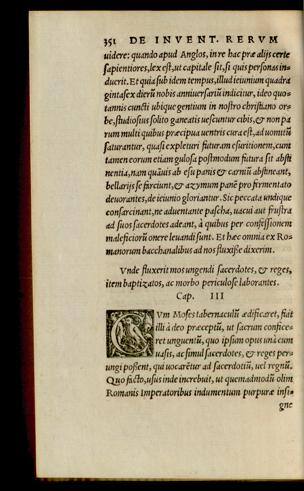 351 DE INVENT. RERVM
uidere: quando apud Anglos, in re hac præ alijs certe
sapientiores, lex est, ut capitale sit, si quis personas in=
duerit. Et quia sub idem tempus, illud ieiunium quadra
ginta sex dierũ nobis anniuersariũ indicitur, ideo quo=
tannis cuncti ubique gentium in nostro christiano or=
be, studiosius solito ganeatis uescuntur cibis, & non pa
rum multi quibus præcipua uentris cura est, ad uomitũ
saturantur, quasi expleturi futuram esuritionem, cum
tamen eorum etiam gulosa postmodum futura sit absti
nentia, nam quãuis ab esu panis & carniũ abstineant,
bellarijs se farciunt, & azymum panẽ pro fermentato
deuorantes, de ieiunio gloriantur. Sic peccata undique
consarcinant, ne aduentante pascha, uacui aut frustra
ad suos sacerdotes adeant, à quibus per confessionem
maleficiorũ onere leuandi sunt. Et hæc omnia ex Ro=
manorum bacchanalibus ad nos fluxisse dixerim.
Vnde fluxerit mos ungendi sacerdotes, & reges,
item baptizatos, ac morbo periculose laborantes.
Cap. III
CVm Moses tabernaculũ ædificaret, fuit
illi à deo præceptũ, ut sacrum confice=
ret unguentũ, quo ipsum opus unà cum
uasis, ac simul sacerdotes, & reges per=
ungi possent, qui uocarẽtur ad sacerdotiũ, uel regnũ.
Quo facto, usus inde increbuit, ut quemadmodũ olim
Romanis Imperatoribus indumentum purpuræ insi=
gne